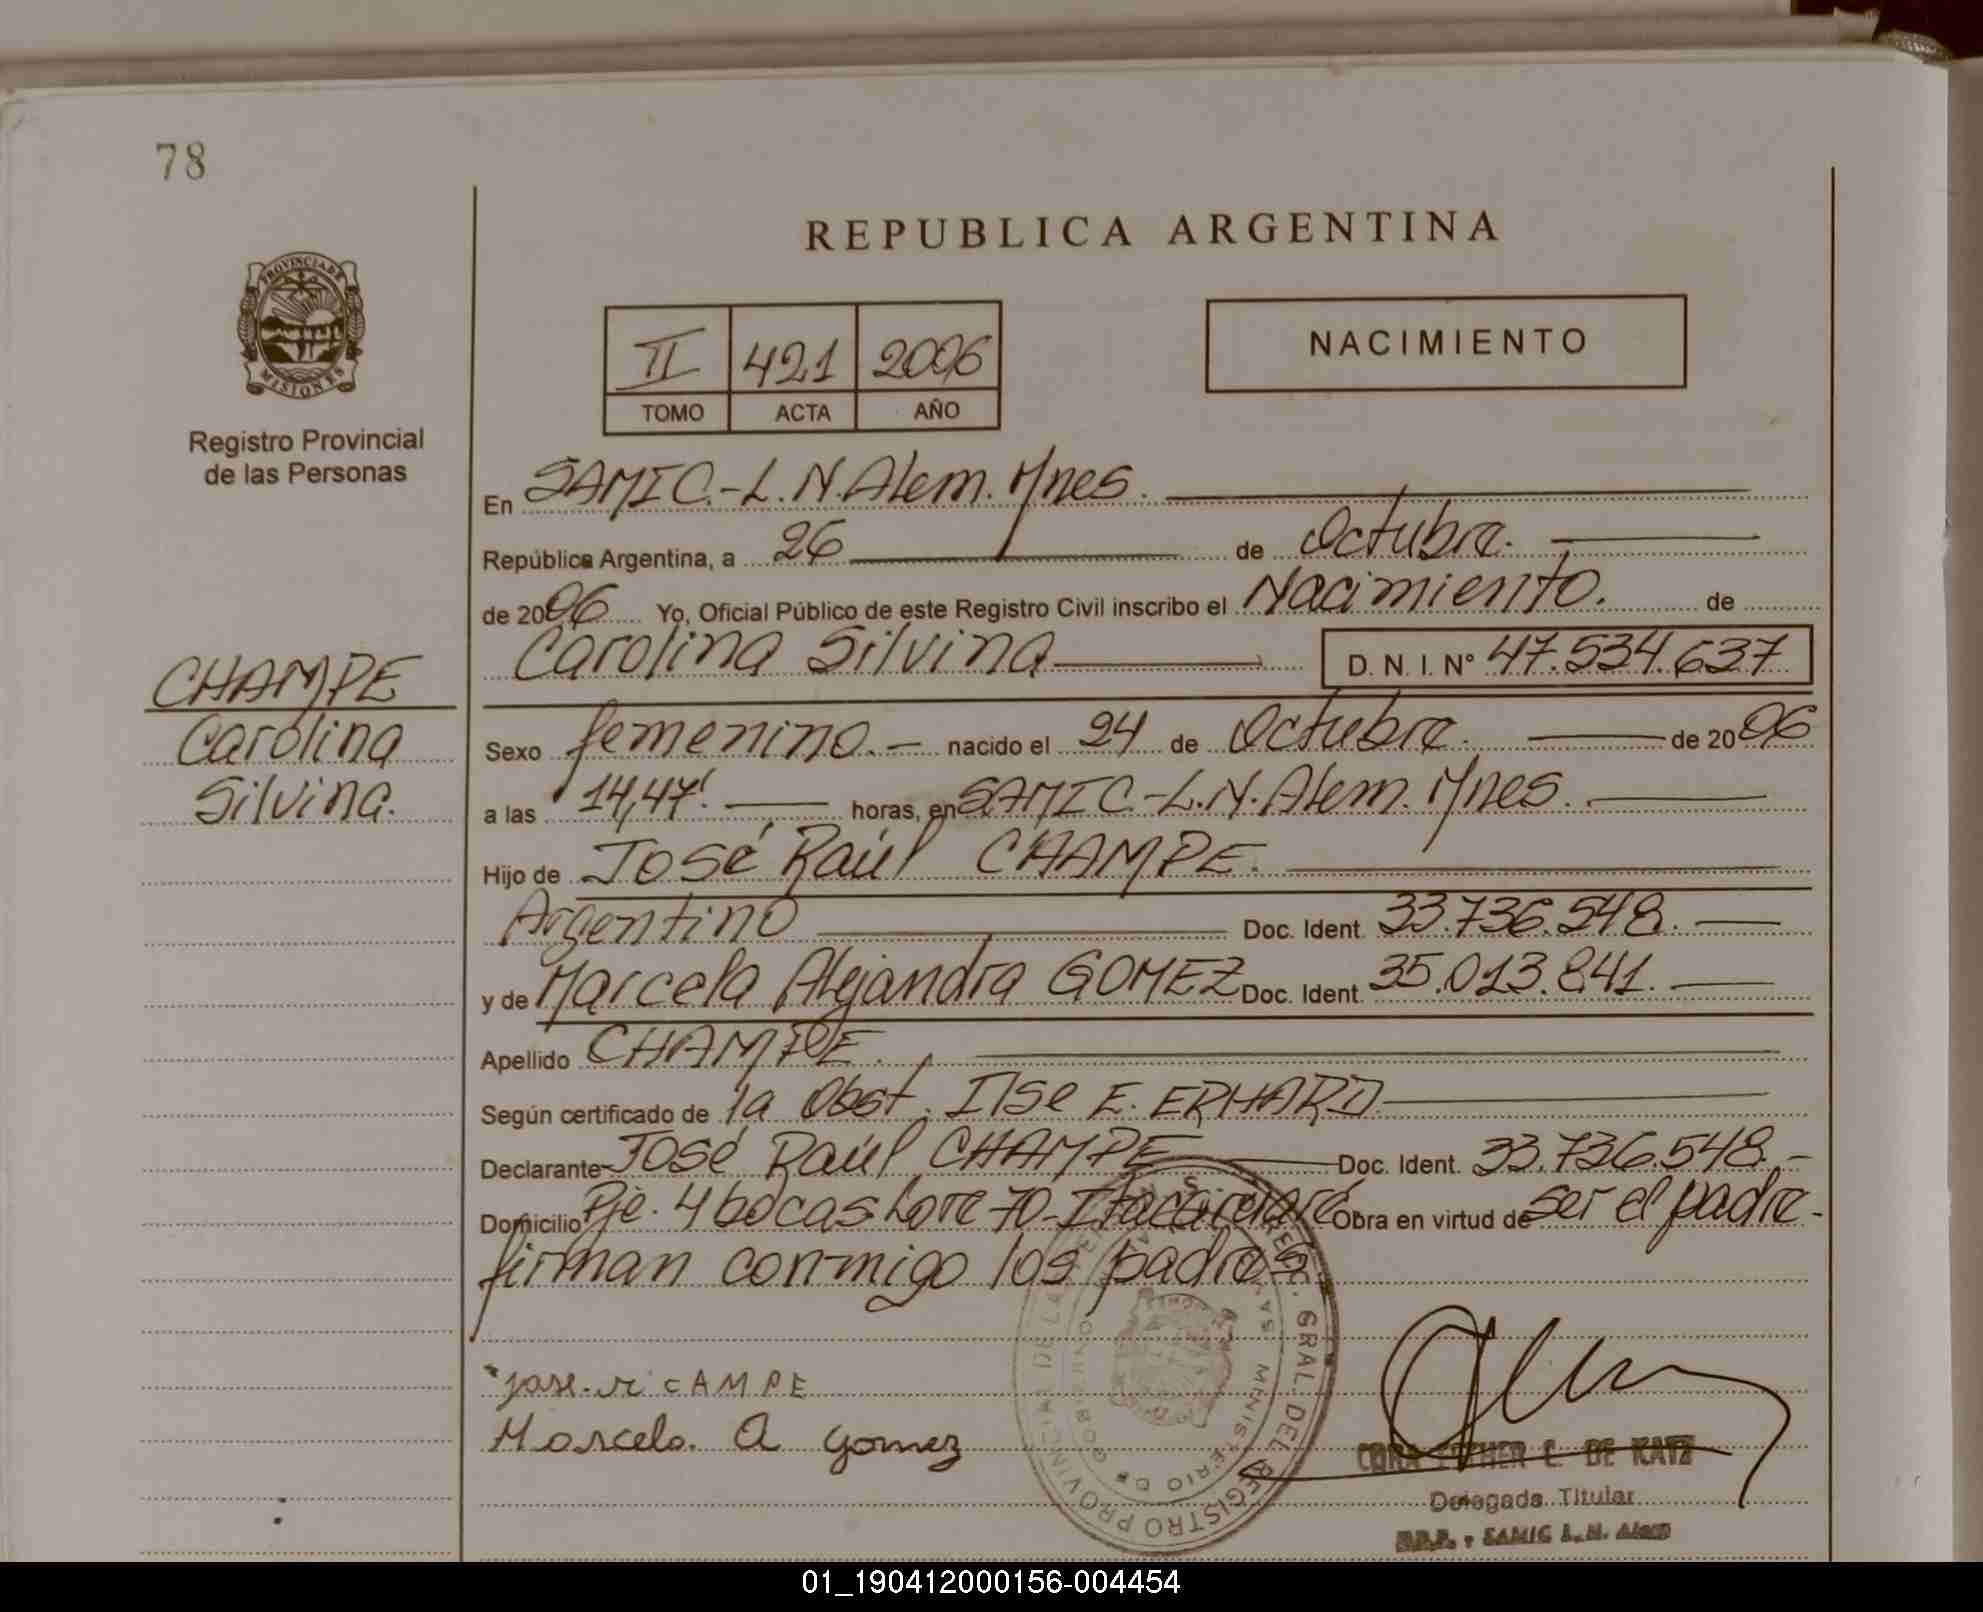 78
REPUBLICA ARGENTINA
PROVINCIA DE
MISIONES
Registro Provincial
de las Personas
II 421 2006
TOMO ACTA AÑO
NACIMIENTO
En SAMIC.-L.N.Alem. Mnes.
República Argentina, a 26 de Octubre.
de 2006 Yo, Oficial Público de este Registro Civil inscribo el Nacimiento. de
Carolina Silvina D. N. I. Nº 47.534.637
CHAMPE
Carolina
Silvina.
Sexo femenino.- nacido el 24 de Octubre. de 2006
a las 14,47'. horas, en SAMIC.-L.N.Alem. Mnes.
Hijo de José Raúl CHAMPE.
Argentino Doc. Ident. 33.736.548.
y de Marcela Alejandra GOMEZ Doc. Ident. 35.013.841.
Apellido CHAMPE.
Según certificado de la Obst. Ilse E. ERHARD
Declarante José Raúl CHAMPE Doc. Ident. 33.736.548.-
Domicilio Pje. 4 bocas Lote 70- Itacaruaré Obra en virtud de ser el padre-
firman conmigo los padres
jose r CAMPE
Marcela. A gomez
GRAL. DEL REGISTRO PROVINCIAL DE LAS
MINISTERIO DE GOBIERNO
CORA ESTHER C. DE KATZ
Delegada Titular
R.P.P. - SAMIC L.N. Alem
01_190412000156-004454